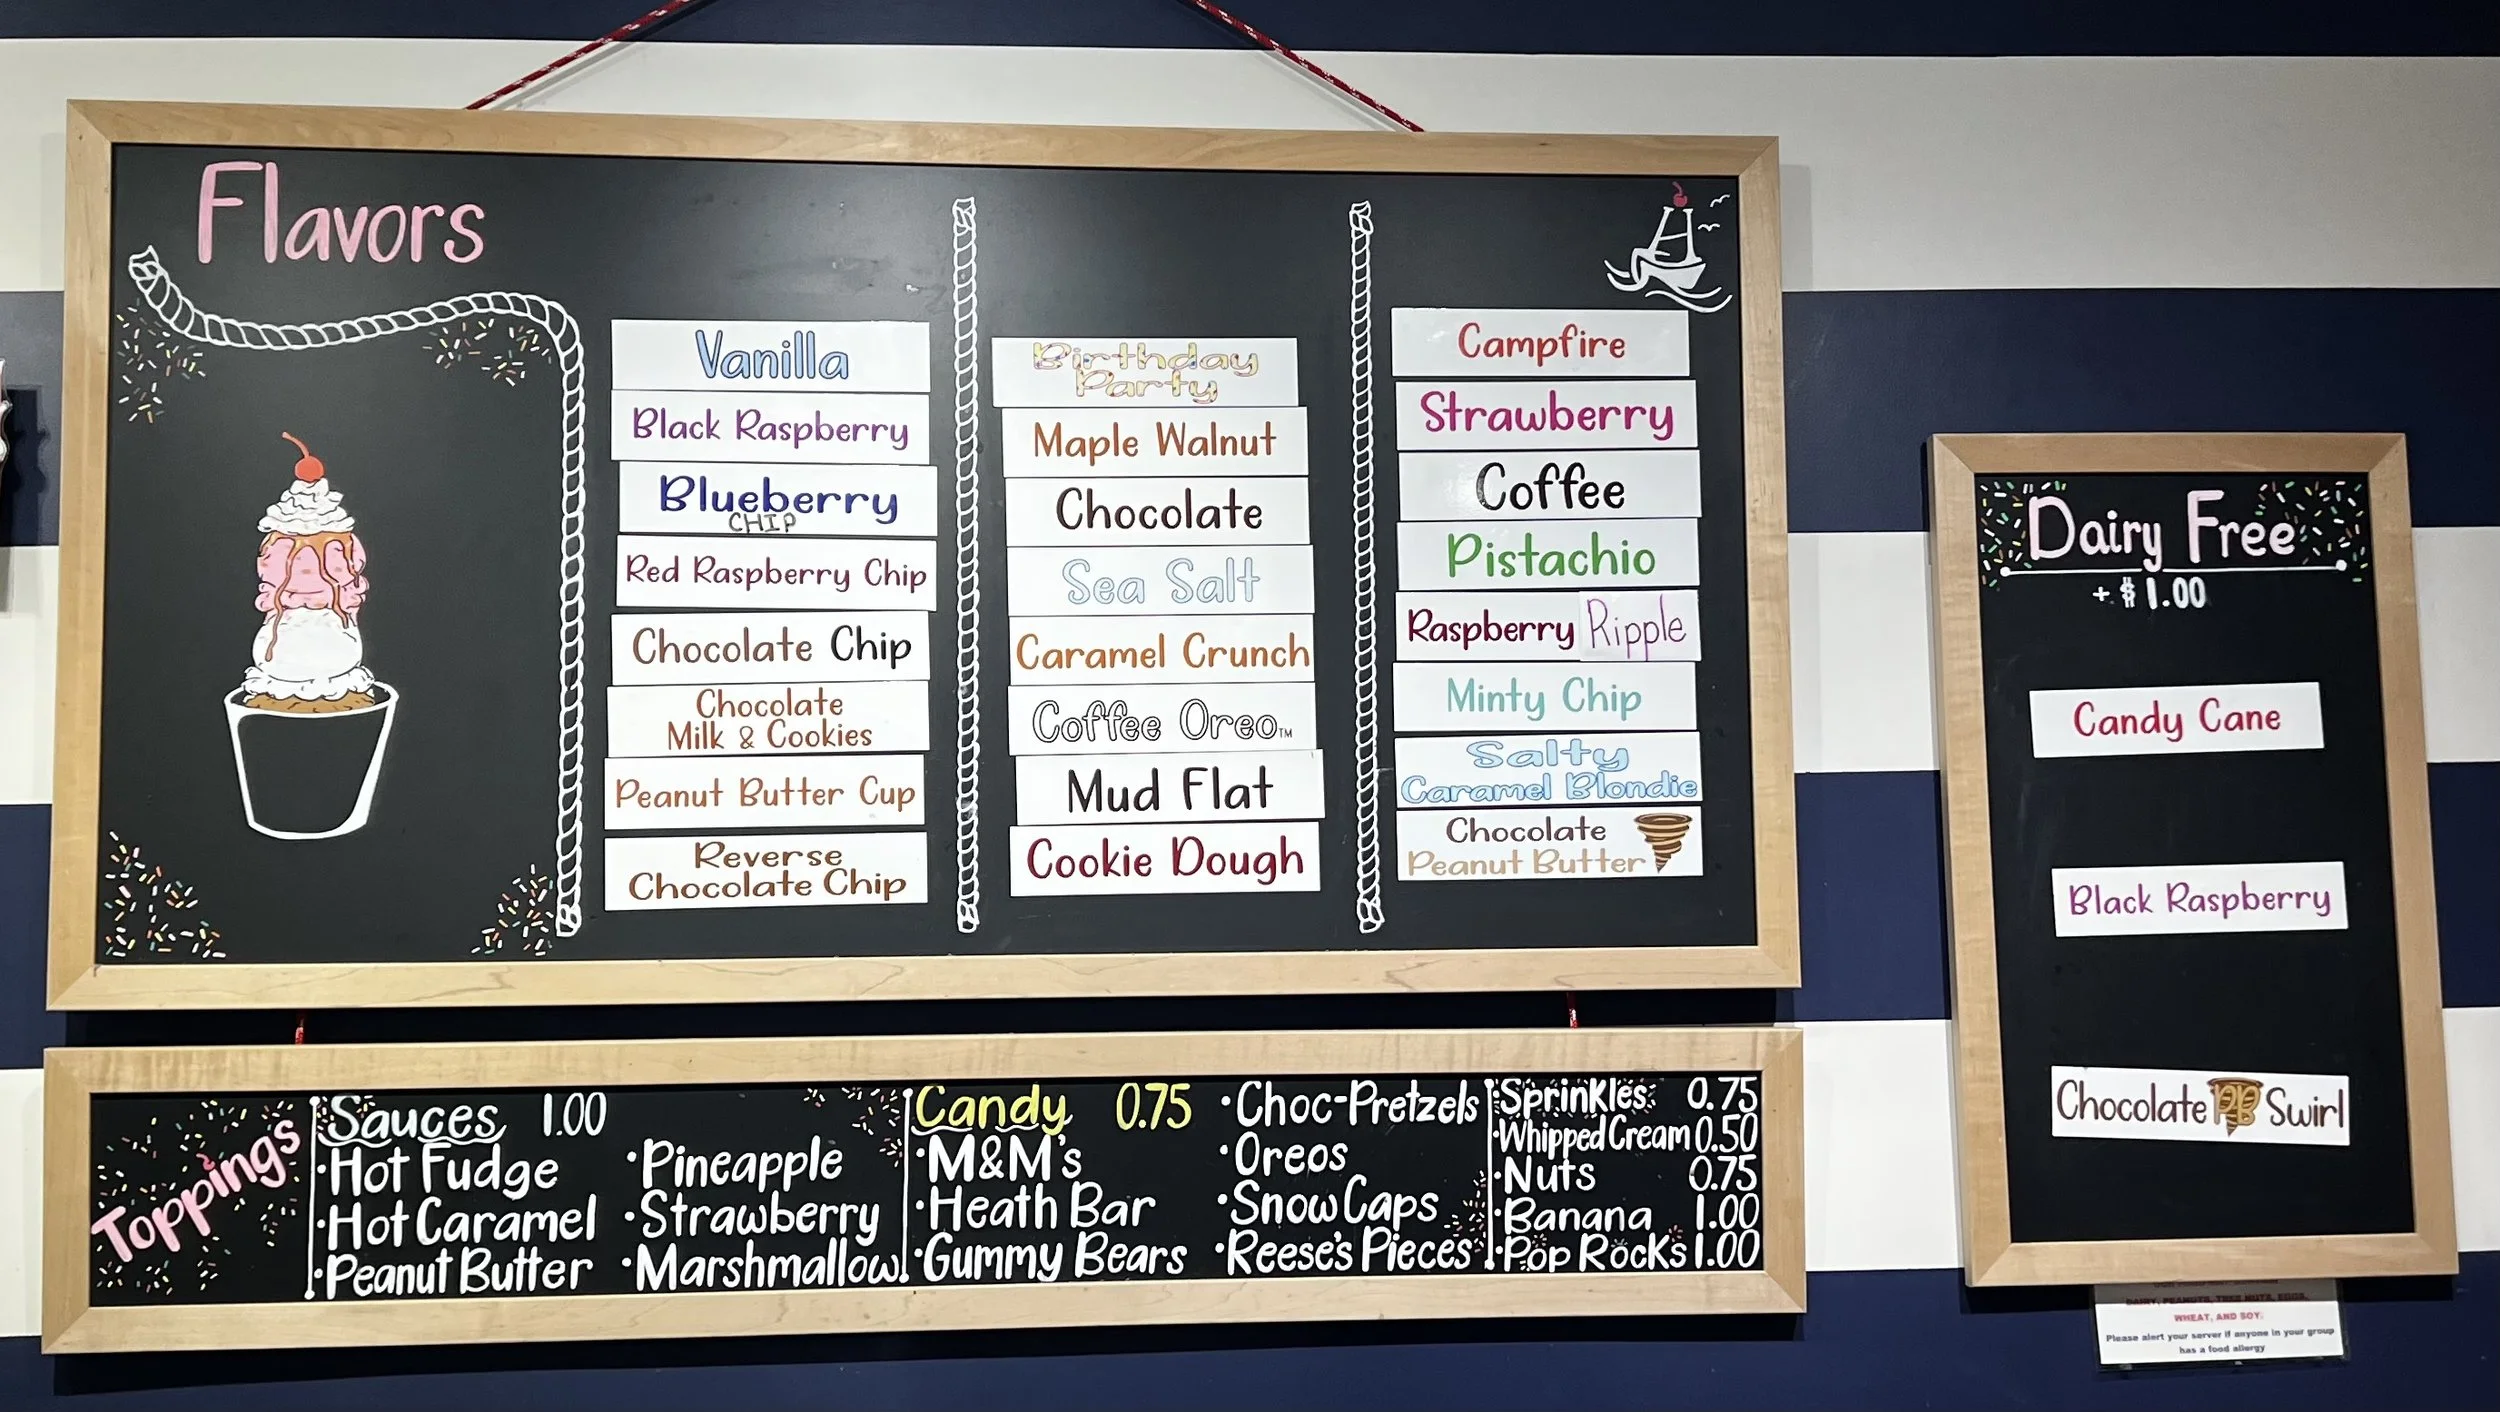 Flavors
Vanilla
Black Raspberry
Blueberry
CHIP
Red Raspberry Chip
Chocolate Chip
Chocolate
Milk & Cookies
Peanut Butter Cup
Reverse
Chocolate Chip
Birthday
Party
Maple Walnut
Chocolate
Sea Salt
Caramel Crunch
Coffee Oreo™
Mud Flat
Cookie Dough
Campfire
Strawberry
Coffee
Pistachio
Raspberry Ripple
Minty Chip
Salty
Caramel Blondie
Chocolate
Peanut Butter
Dairy Free
+ $1.00
Candy Cane
Black Raspberry
Chocolate PB Swirl
Toppings
Sauces 1.00
•Hot Fudge
•Hot Caramel
•Peanut Butter
•Pineapple
•Strawberry
•Marshmallow
Candy 0.75
•M&M's
•Heath Bar
•Gummy Bears
•Choc-Pretzels
•Oreos
•Snow Caps
•Reese's Pieces
•Sprinkles 0.75
•Whipped Cream 0.50
•Nuts 0.75
•Banana 1.00
•Pop Rocks 1.00
DAIRY, PEANUTS, TREE NUTS, EGGS,
WHEAT, AND SOY.
Please alert your server if anyone in your group
has a food allergy